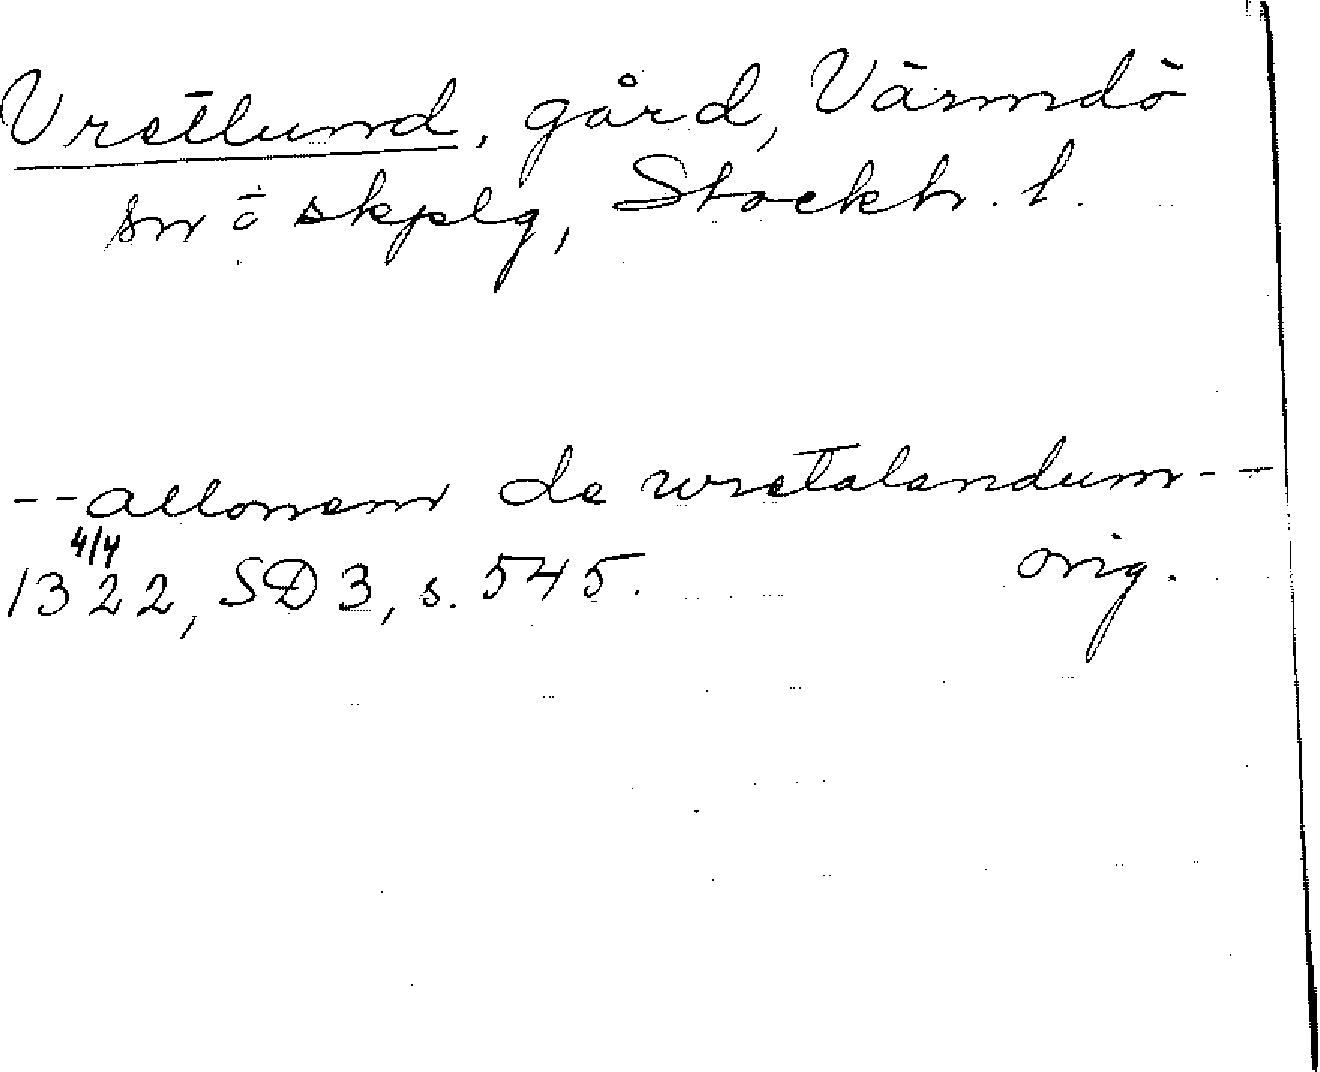 Vretlund, gård, Värmdö
sn o skplg, Stockh. l.
--allonem de wretalandum--
4/4
1322, SD 3, s. 545. orig.